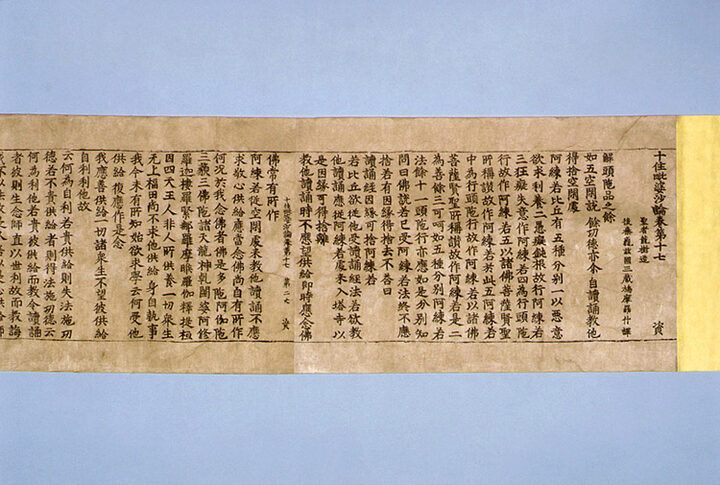 十住毗婆沙論卷第十七 資
聖者龍樹造
後秦龜茲國三藏鳩摩羅什譯
解頭陀品之餘
如五空閑說 餘切德亦令自讀誦教他
得捨空閑處
阿練若比丘有五種分別一以惡意
欲求利養二愚癡鈍根故行阿練若
三狂癡失意作阿練若四為行頭陀
行故作阿練若五以諸佛菩薩賢聖
所稱讚故作阿練若於此五阿練若
中為行頭陀行故作阿練若以諸佛
菩薩賢聖所稱讚故作阿練若是二
為善餘三可呵如五種分別阿練若
法餘十一頭陀行亦應如是分別知
問曰佛說若已受阿練若法終不應
捨若有因緣得捨去不荅曰
讀誦經因緣可捨阿練若
若比丘欲從他受讀誦經法若欲教
他讀誦應從阿練若處來入塔寺以
是因緣可得捨離
教他讀誦時不應望供給即時應念佛
十住毗婆沙論卷第十七 第二 資
佛常有所作
阿練若從空閑處來教他讀誦不應
求敬心供給應當念佛尚自有所作
何況於我念佛者佛是多陀阿伽陀
三藐三佛陀諸天龍神乹闥婆阿修
羅迦樓羅緊那羅摩睺羅伽釋提桓
因四天王人非人所供養一切衆生
无上福田尚不求他供給身自執事
我今未有所知始欲求學云何受他
供給復應作是念
我應善供給一切諸衆生不望彼供給
自利利他故
云何為自利若貴供給則失法施功
德若不貴供給者則得法施功德云
何為利他若貴彼供給而教令讀誦
者彼則生念師直以世利故而教誨